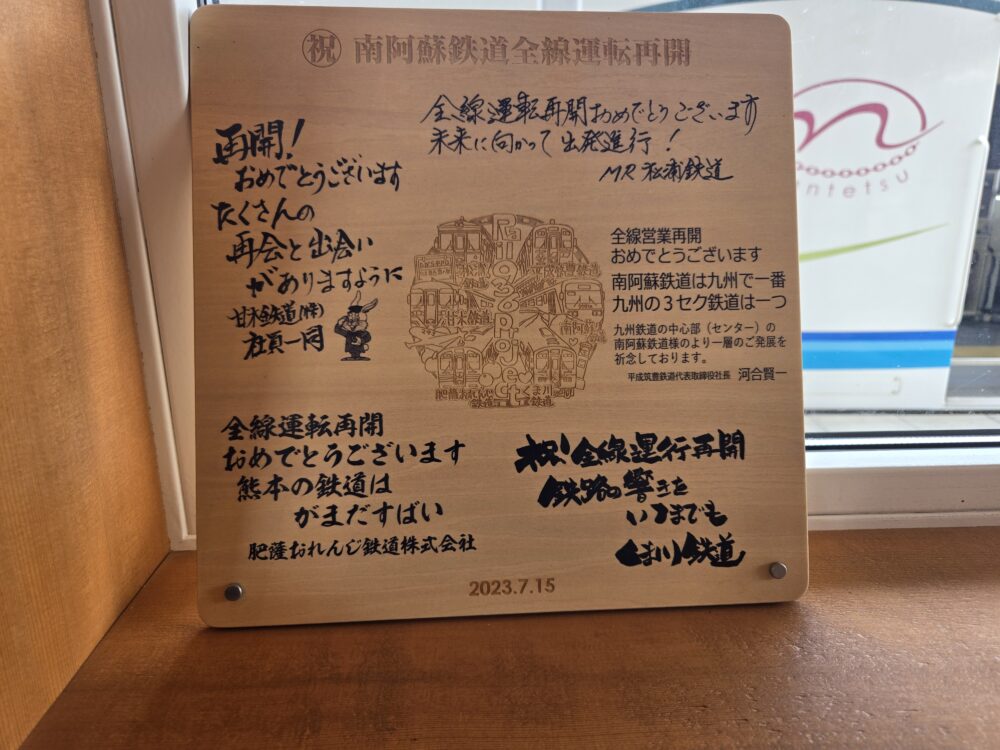 祝 南阿蘇鉄道全線運転再開
全線運転再開おめでとうございます
未来に向かって出発進行!
MR 松浦鉄道
再開!
おめでとうございます
たくさんの
再会と出会い
がありますように
甘木鉄道(株)
社員一同
全線営業再開
おめでとうございます
南阿蘇鉄道は九州で一番
九州の3セク鉄道は一つ
九州鉄道の中心部(センター)の
南阿蘇鉄道様のより一層のご発展を
祈念しております。
平成筑豊鉄道代表取締役社長 河合賢一
Rail36Project
松浦鉄道
平成筑豊鉄道
甘木鉄道
南阿蘇
肥薩おれんじ
鉄道
くま川
鉄道
全線運転再開
おめでとうございます
熊本の鉄道は
がまだすばい
肥薩おれんじ鉄道株式会社
祝!全線運行再開
鉄路の響きを
いつまでも
くま川鉄道
2023.7.15
ntetsu